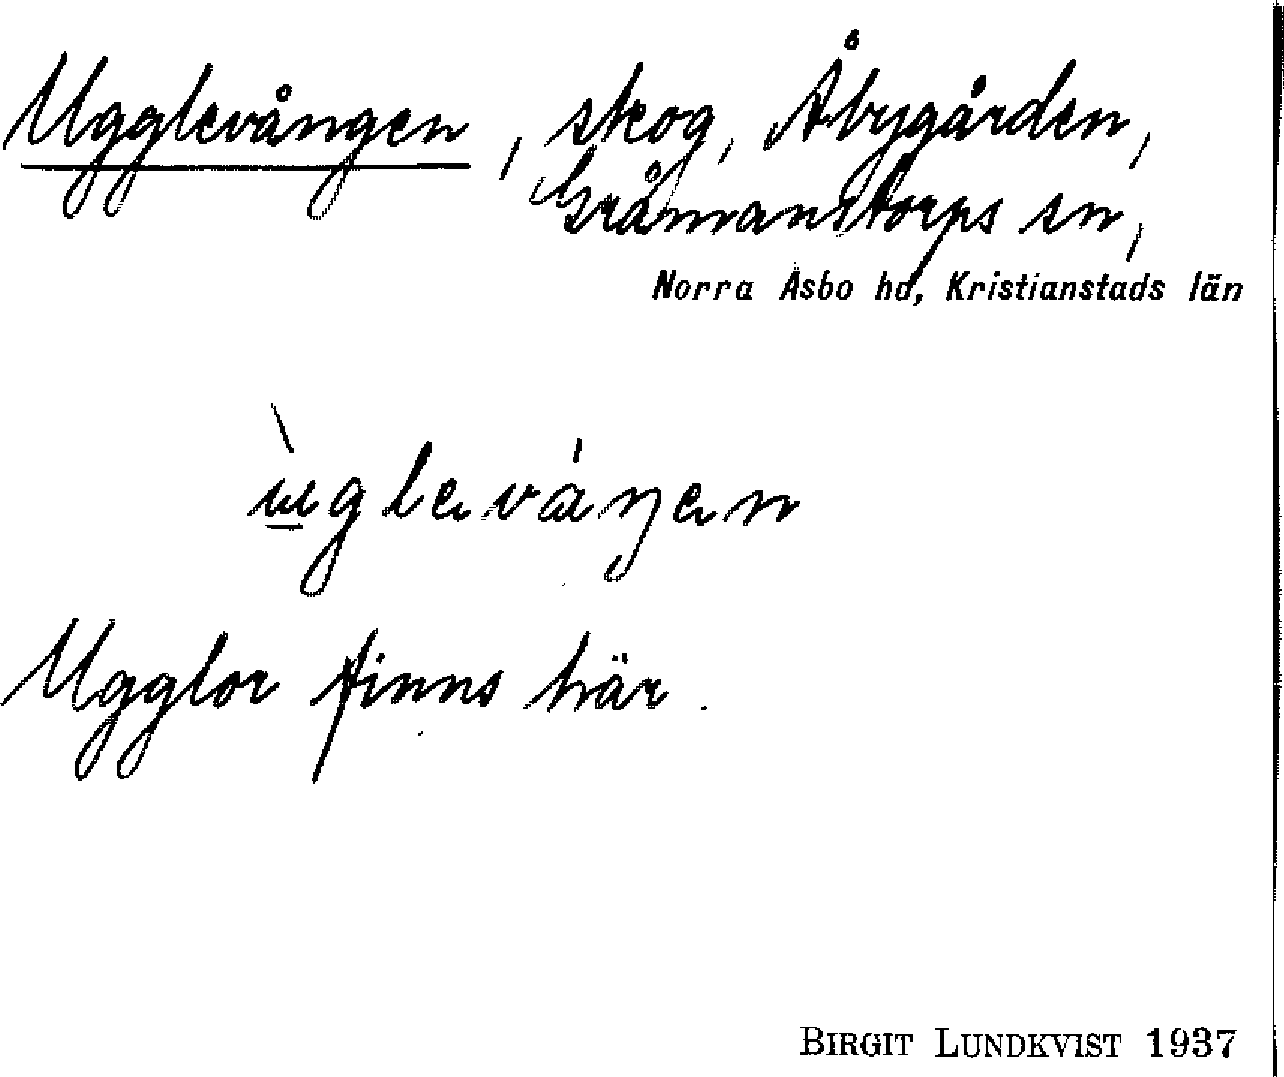 Ugglevången, skog, Åbygården,
Gråmanstorps sn,
Norra Åsbo hd, Kristianstads län
Ugglor finns här.
BIRGIT LUNDKVIST 1937